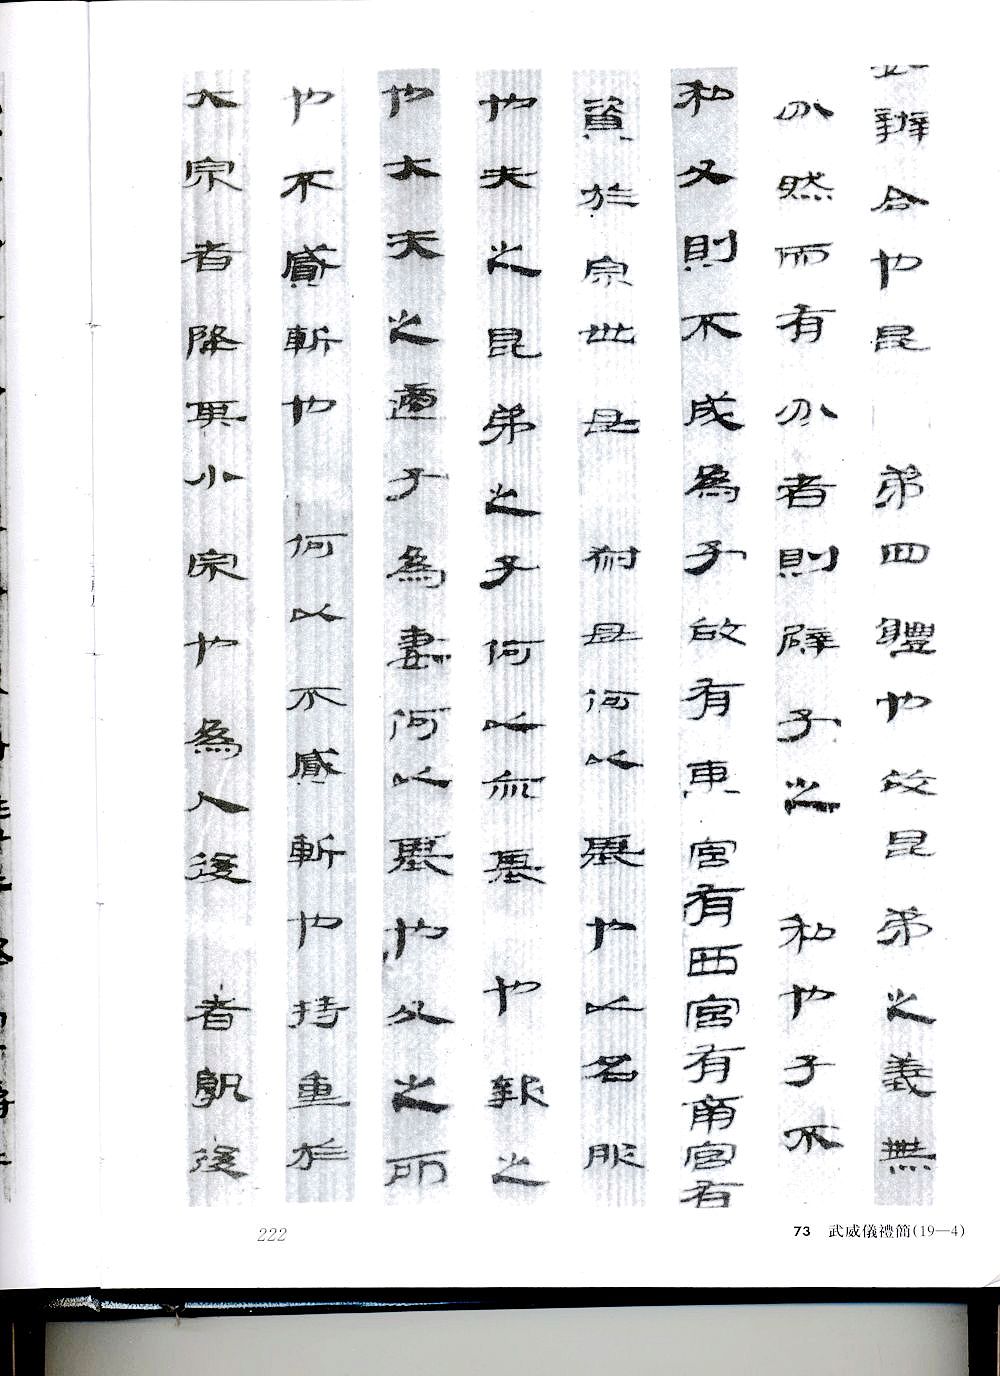 辨合也昆弟四體也故昆弟之義無
分然而有分者則辟子之私也子不
私父則不成為子故有東宮有西宮有南宮有
資於宗世母叔母何以朞也以名服
也夫之昆弟之子何以亦朞也報之
也大夫之適子為妻何以朞也父之所
也不貳斬也何以不貳斬也持重於
大宗者降其小宗也為人後者孰後
73 武威儀禮簡(19—4)
222